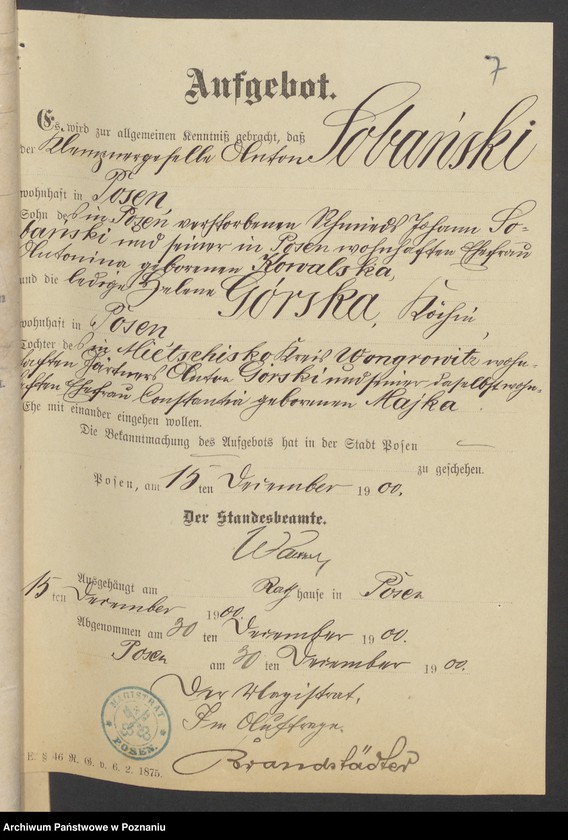 7
Aufgebot.
Es wird zur allgemeinen Kenntniß gebracht, daß
der Klempnergeselle Anton Sobański
wohnhaft in Posen
Sohn des in Posen verstorbenen Schmieds Johann So-
bański und seiner in Posen wohnhaften Ehefrau
Antonina geborenen Kowalska,
und die ledige Helene Górska, Köchin,
wohnhaft in Posen
Tochter des in Mietschisko Kreis Wongrowitz wohn-
haften Gärtners Anton Górski und seiner daselbst wohn-
haften Ehefrau Constantia geborenen Majka.
Ehe mit einander eingehen wollen.
Die Bekanntmachung des Aufgebots hat in der Stadt Posen
zu geschehen.
Posen, am 15 ten Dezember 1900.
Der Standesbeamte.
Ausgehängt am
15 ten Dezember 1900. Rathhause in Posen
Abgenommen am 30 ten Dezember 1900.
Posen am 30 ten Dezember 1900.
Der Magistrat.
Im Auftrage.
Brandstädter
MAGISTRAT
POSEN.
E. § 46 R. G. v. 6. 2. 1875.
Archiwum Państwowe w Poznaniu